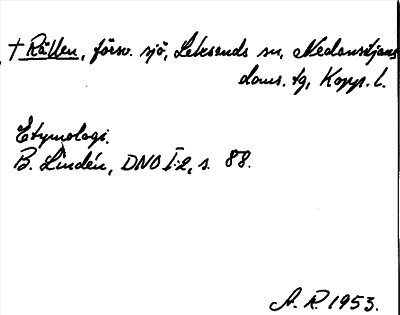 † Rällen, försv. sjö, Leksands sn, Nedansiljans
doms. tg, Kopp. l.
Etymologi.
B. Lindén, DNO I:2, s. 88.
A. R. 1953.